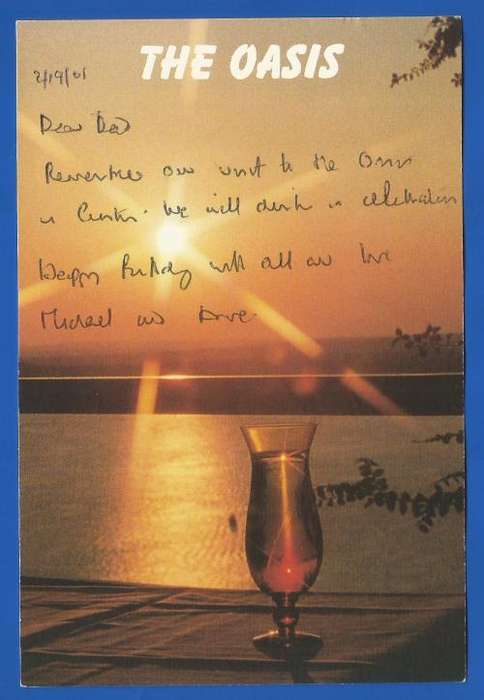 THE OASIS
2/19/01
Dear Dad
Remember our visit to the Oasis
in Austin. We will drink in celebration
Happy Birthday with all our love
Michael and